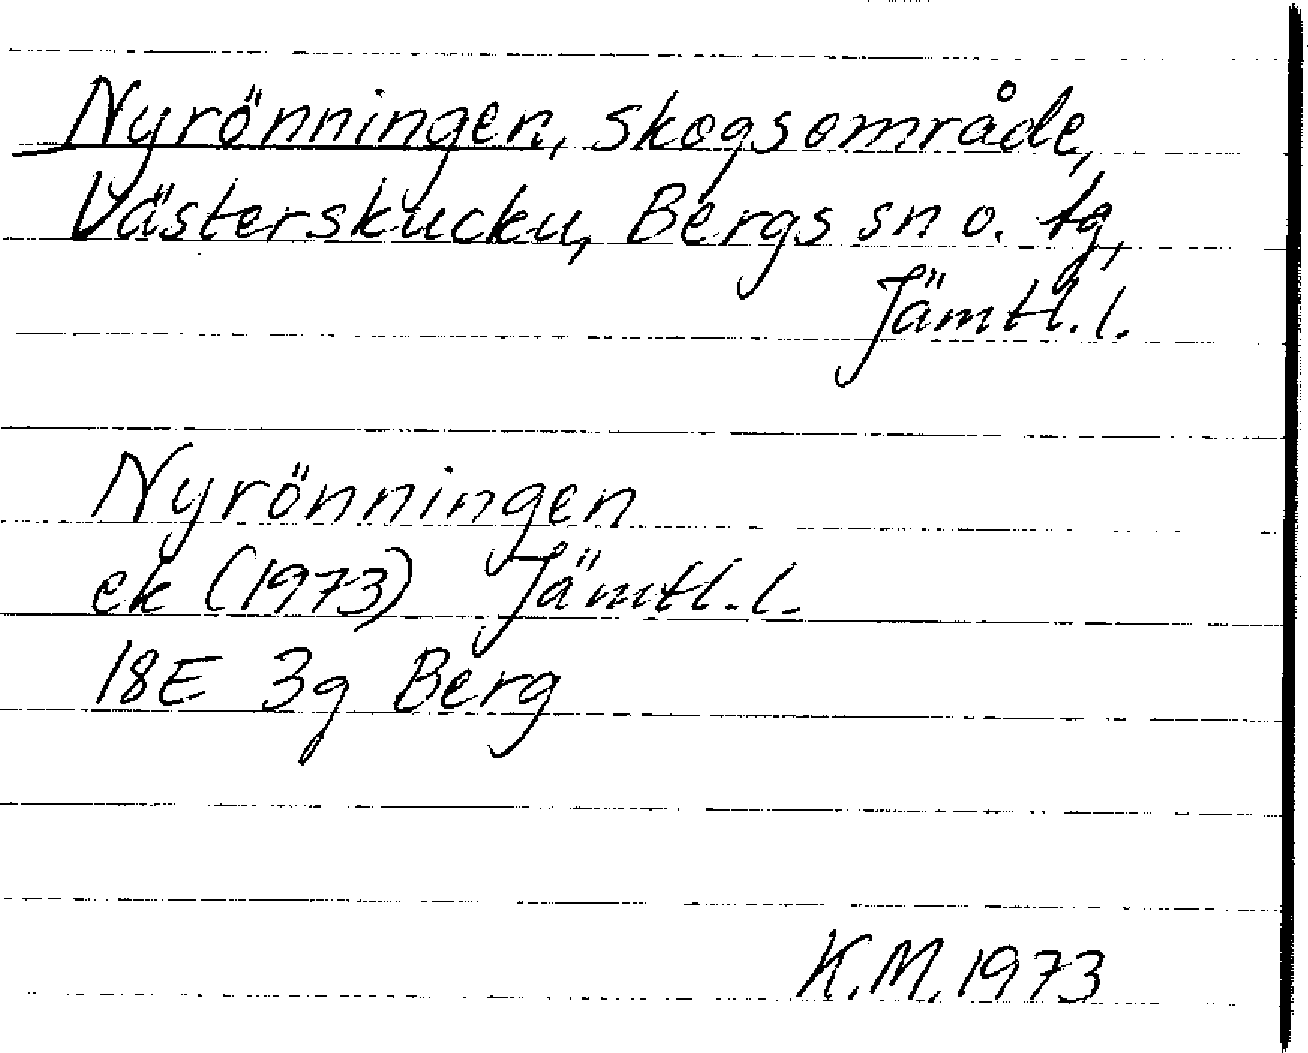 Nyrönningen, skogsområde,
Västerskucku, Bergs sn o. tg,
Jämtl. l.
Nyrönningen
ek (1973) Jämtl. l.
18E 3g Berg
K.M. 1973